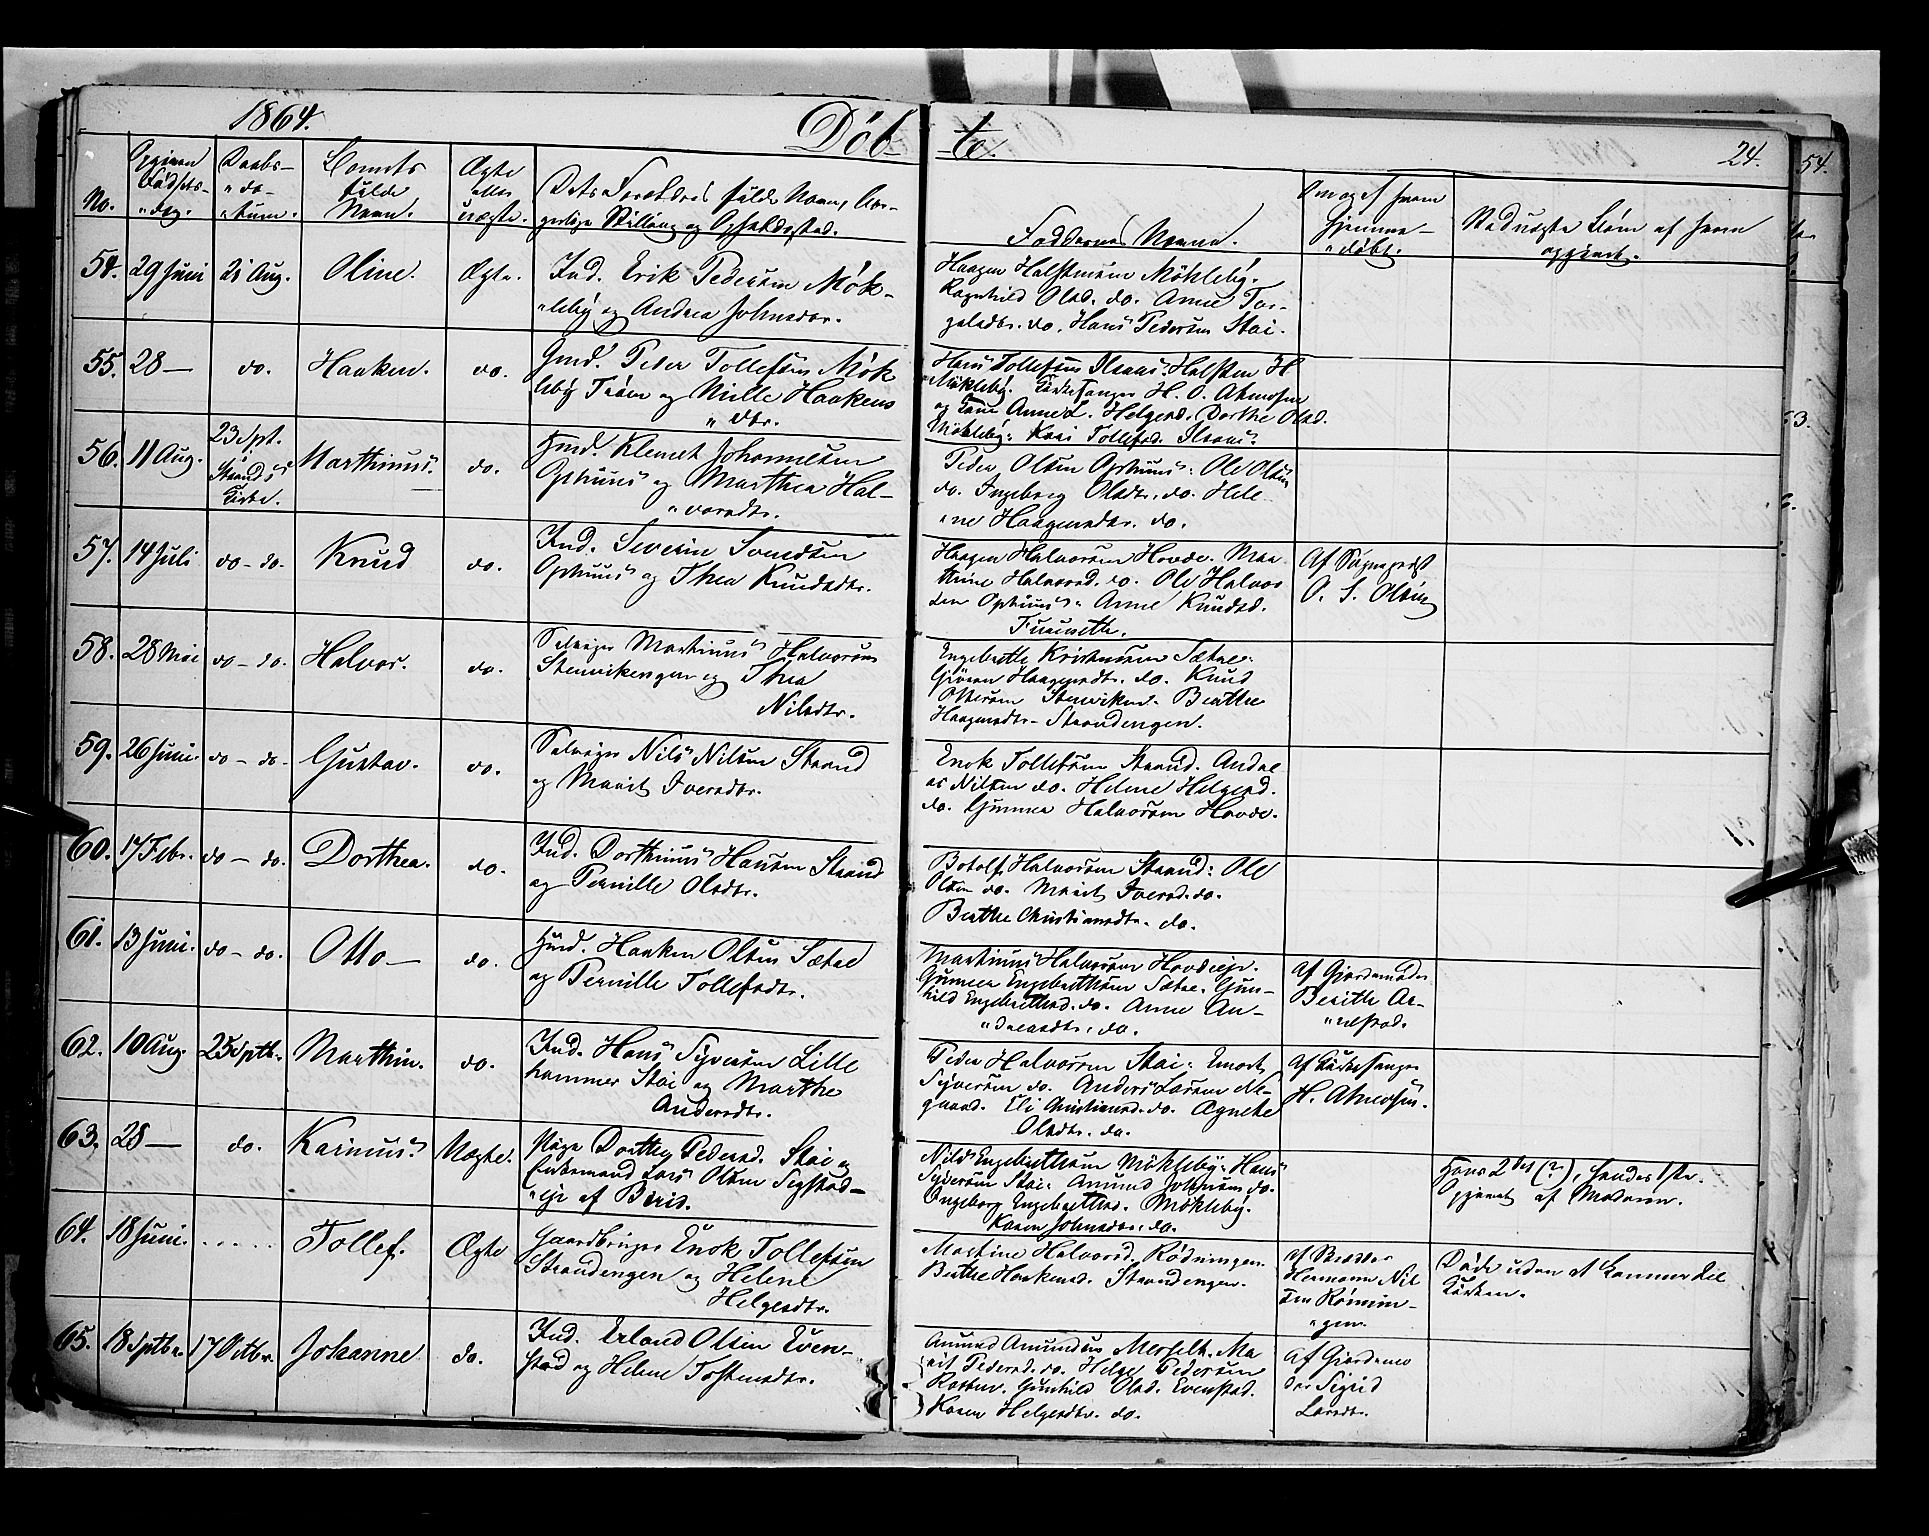 1864.
Döb-
te.
24.
54.
No.
Opgiven
Fødsels-
"dag.
Daabs-
"da-
"tum.
Barnets
fulde
Navn.
Ægte
eller
uægte.
Dets Forældres fulde Navn, bor-
gerlige Stilling og Opholdssted.
Faddernes Navne.
Om og af hvem
hjemme-
"døbt.
Ved uægte Børn af hvem
opgivet.
54.
29 Juni
21 Aug.
Oline.
Ægte.
Ind. Erik Pedersen Mök-
"leby og Andrea Johnsdtr.
Haagen Halstensen Mökleby.
Ragnhild Olsd. do. Anne Tor-
galsdtr. do. Hans Pedersen Stai.
55.
28 —
do.
Haaken.
do.
Gmd. Peder Tollefsen Mök
leby Trøen og Mille Haakens
"dtr.
Hans Tollefsen. Halsten H
Mökleby. Kirkesanger H. O. Atmosen
og Kone Anne L. Helgesd. Dorthe Olsd.
Mökleby. Kari Tollefsd.
56.
11 Aug.
23 Spt.
i
Strands
Kirke.
Marthinus.
do.
Hmd. Klemet Johannesen
Ophuus og Marthea Hal-
"vorsdtr.
Peder Olsen Ophuus. Ole Olsen
do. Ingeborg Olsdtr. do. Hele
"ne Haagensdtr. do.
57.
14 Juli
do - do.
Knud
do.
Ind. Severin Svendsen
Ophuus og Thea Knudsdtr.
Haagen Halvorsen Hovde. Mar
thine Halvorsd. do. Ole Halvor
sen Ophuus. Anne Knudsd.
Furuseth.
Af Sognepræst
O. S. Olsen
58.
28 Mai
do - do.
Halvor.
do.
Selveier Martinus Halvorsen
Stenvikengen og Thea
Nilsdtr.
Engebreth Kristensen Sætre.
Gjøren Haagensdtr. do. Knud
Ottersen Stenviken. Berthe
Haagensdtr. Strandengen.
59.
26 Juni.
do - do.
Gustav.
do.
Selveier Nils Nilsen Strand
og Marit Iversdtr.
Enok Tollefsen Strand. Andre
as Nilsen do. Helene Helgesd.
do. Gunner Halvorsen Hovde.
60.
17 Febr.
do - do.
Dorthea.
do.
Ind. Dorthinus Hansen Strand
og Pernille Olsdtr.
Botolf Halvorsen Strand. Ole
Olsen do. Marit Iversd. do.
Berthe Christiansdtr. do.
61.
13 Juni.
do - do.
Otto —
do.
Hmd. Haaken Olsen Sætre
og Pernille Tollefsdtr.
Martinus Halvorsen Hovdeeje.
Gunner Engebrethsen Sætre. Gun-
hild Engebrethsd. do. Anne An-
"dreasdtr. do.
Af Gjordemoder
Berithe Ar-
"nessd.
62.
10 Aug.
25 Sptb.
Marthin.
do.
Ind. Hans Syversen Lille
hammer Stai og Marthe
Andersdtr.
Peder Halvorsen Stai. Embret
Syversen do. Anders Larsen Ne-
gaard. Eli Christiansd. do. Agnethe
Olsdtr. do.
Af Kirkesanger
H. Atmosen.
63.
28 —
do.
Karinus.
Uægte.
Pige Dorthe Pedersd. Stai og
Enkemand Lars Olsen Segstad-
"eje af Biris.
Nils Engebrethsen Mökleby. Hans
Syversen Stai. Amund Johnsen do.
Ingeborg Engebrethsd. Mökleby.
Karen Johnsdtr. do.
Hans 2det (?), hendes 1ste.
Opgivet af Moderen.
64.
18 Juni.
.....
Tollef.
Ægte
Gaardbruger Enok Tollefsen
Strandengen og Helene
Helgesdtr.
Martine Halvorsd. Rödningen.
Berthe Haakensd. Strandengen.
af
Hermann Nil
sen Rönin-
"gen.
Døde uden at komme til
Kirken.
65.
18 Sptbr.
17 Octbr.
Johanne
do.
Ind. Erland Olsen Even-
stad og Helene Tostensdtr.
Amund Amundsen Messelt. Ma
rit Pedersd. do. Helge Pedersen
Rasten. Gunhild Olsd. Evenstad.
Karen Helgesdtr. do.
Af Gjordemo
der Sigrid
Larsdtr.